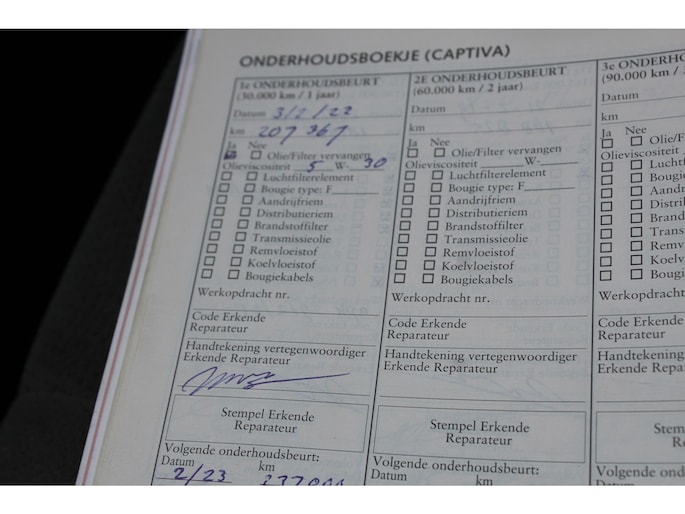 ONDERHOUDSBOEKJE (CAPTIVA)
1e ONDERHOUDSBEURT
(30.000 km / 1 jaar)
Datum 3/2/22
km 207 367
Ja Nee
Olie/Filter vervangen
Olieviscositeit 5 W- 30
Luchtfilterelement
Bougie type: F
Aandrijfriem
Distributieriem
Brandstoffilter
Transmissieolie
Remvloeistof
Koelvloeistof
Bougiekabels
Werkopdracht nr.
Code Erkende
Reparateur
Handtekening vertegenwoordiger
Erkende Reparateur
Stempel Erkende
Reparateur
Volgende onderhoudsbeurt:
Datum km
2/23
2E ONDERHOUDSBEURT
(60.000 km / 2 jaar)
Datum
km
Ja Nee
Olie/Filter vervangen
Olieviscositeit W-
Luchtfilterelement
Bougie type: F
Aandrijfriem
Distributieriem
Brandstoffilter
Transmissieolie
Remvloeistof
Koelvloeistof
Bougiekabels
Werkopdracht nr.
Code Erkende
Reparateur
Handtekening vertegenwoordiger
Erkende Reparateur
Stempel Erkende
Reparateur
Volgende onderhoudsbeurt:
Datum km
3e ONDERHO
(90.000 km /
Datum
km
Ja Nee
Olie/F
Olieviscositeit
Luchtf
Bougie
Aandri
Distri
Brand
Trans
Remvl
Koelv
Bougi
Werkopdracht
Code Erkende
Reparateur
Handtekening
Erkende Repa
Stem
R
Volgende ond
Datum